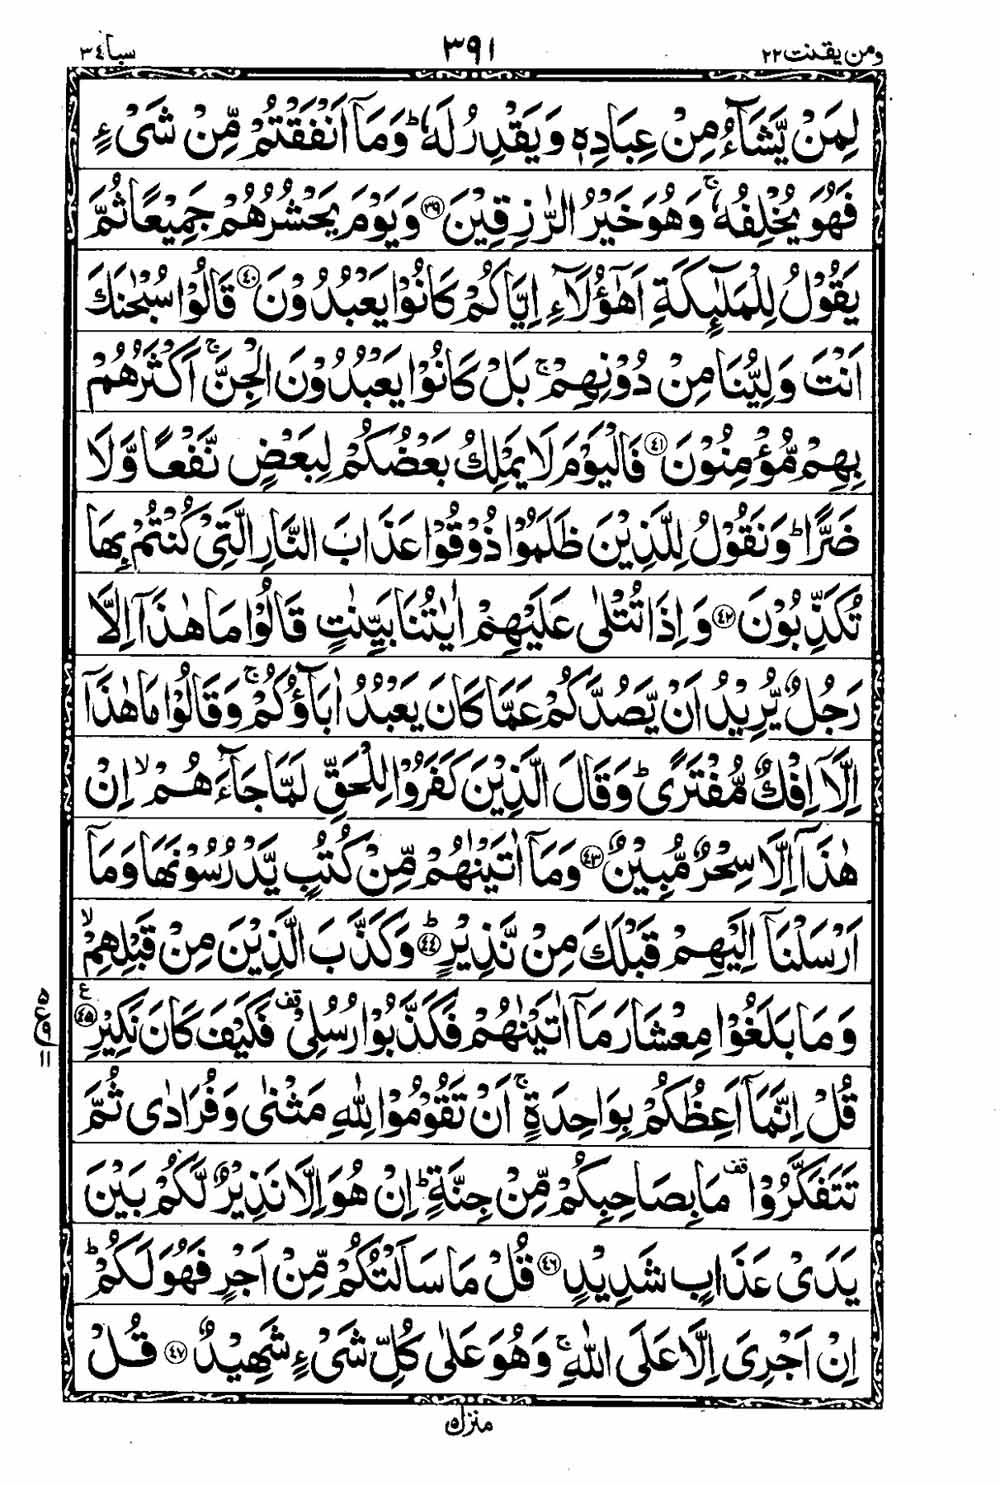 ومن يقنت ٢٢
٣٩١
سبا ٣٤
لِمَنْ يَّشَآءُ مِنْ عِبَادِهٖ وَيَقْدِرُ لَهٗ ؕ وَمَاۤ اَنْفَقْتُمْ مِّنْ شَیْءٍ
فَهُوَ يُخْلِفُهٗ ۚ وَهُوَ خَيْرُ الرّٰزِقِيْنَ ۝٣٩ وَيَوْمَ يَحْشُرُهُمْ جَمِيْعًا ثُمَّ
يَقُوْلُ لِلْمَلٰٓئِكَةِ اَهٰۤؤُلَآءِ اِيَّاكُمْ كَانُوْا يَعْبُدُوْنَ ۝٤٠ قَالُوْا سُبْحٰنَكَ
اَنْتَ وَلِيُّنَا مِنْ دُوْنِهِمْ ۚ بَلْ كَانُوْا يَعْبُدُوْنَ الْجِنَّ ۚ اَكْثَرُهُمْ
بِهِمْ مُّؤْمِنُوْنَ ۝٤١ فَالْيَوْمَ لَا يَمْلِكُ بَعْضُكُمْ لِبَعْضٍ نَّفْعًا وَّلَا
ضَرًّا ؕ وَنَقُوْلُ لِلَّذِيْنَ ظَلَمُوْا ذُوْقُوْا عَذَابَ النَّارِ الَّتِیْ كُنْتُمْ بِهَا
تُكَذِّبُوْنَ ۝٤٢ وَاِذَا تُتْلٰى عَلَيْهِمْ اٰيٰتُنَا بَيِّنٰتٍ قَالُوْا مَا هٰذَاۤ اِلَّا
رَجُلٌ يُّرِيْدُ اَنْ يَّصُدَّكُمْ عَمَّا كَانَ يَعْبُدُ اٰبَآؤُكُمْ ۚ وَقَالُوْا مَا هٰذَاۤ
اِلَّاۤ اِفْكٌ مُّفْتَرًى ؕ وَقَالَ الَّذِيْنَ كَفَرُوْا لِلْحَقِّ لَمَّا جَآءَهُمْ ۙ اِنْ
هٰذَاۤ اِلَّا سِحْرٌ مُّبِيْنٌ ۝٤٣ وَمَاۤ اٰتَيْنٰهُمْ مِّنْ كُتُبٍ يَّدْرُسُوْنَهَا وَمَاۤ
اَرْسَلْنَاۤ اِلَيْهِمْ قَبْلَكَ مِنْ نَّذِيْرٍ ؕ۝٤٤ وَكَذَّبَ الَّذِيْنَ مِنْ قَبْلِهِمْ ۙ
وَمَا بَلَغُوْا مِعْشَارَ مَاۤ اٰتَيْنٰهُمْ فَكَذَّبُوْا رُسُلِیْ ۫ قف فَكَيْفَ كَانَ نَكِيْرِ ۝٤٥ ع
قُلْ اِنَّمَاۤ اَعِظُكُمْ بِوَاحِدَةٍ ۚ اَنْ تَقُوْمُوْا لِلّٰهِ مَثْنٰى وَفُرَادٰى ثُمَّ
تَتَفَكَّرُوْا قف مَا بِصَاحِبِكُمْ مِّنْ جِنَّةٍ ؕ اِنْ هُوَ اِلَّا نَذِيْرٌ لَّكُمْ بَيْنَ
يَدَیْ عَذَابٍ شَدِيْدٍ ۝٤٦ قُلْ مَا سَاَلْتُكُمْ مِّنْ اَجْرٍ فَهُوَ لَكُمْ ؕ
اِنْ اَجْرِیَ اِلَّا عَلَى اللّٰهِ ۚ وَهُوَ عَلٰى كُلِّ شَیْءٍ شَهِيْدٌ ۝٤٧ قُلْ
منزل ٥